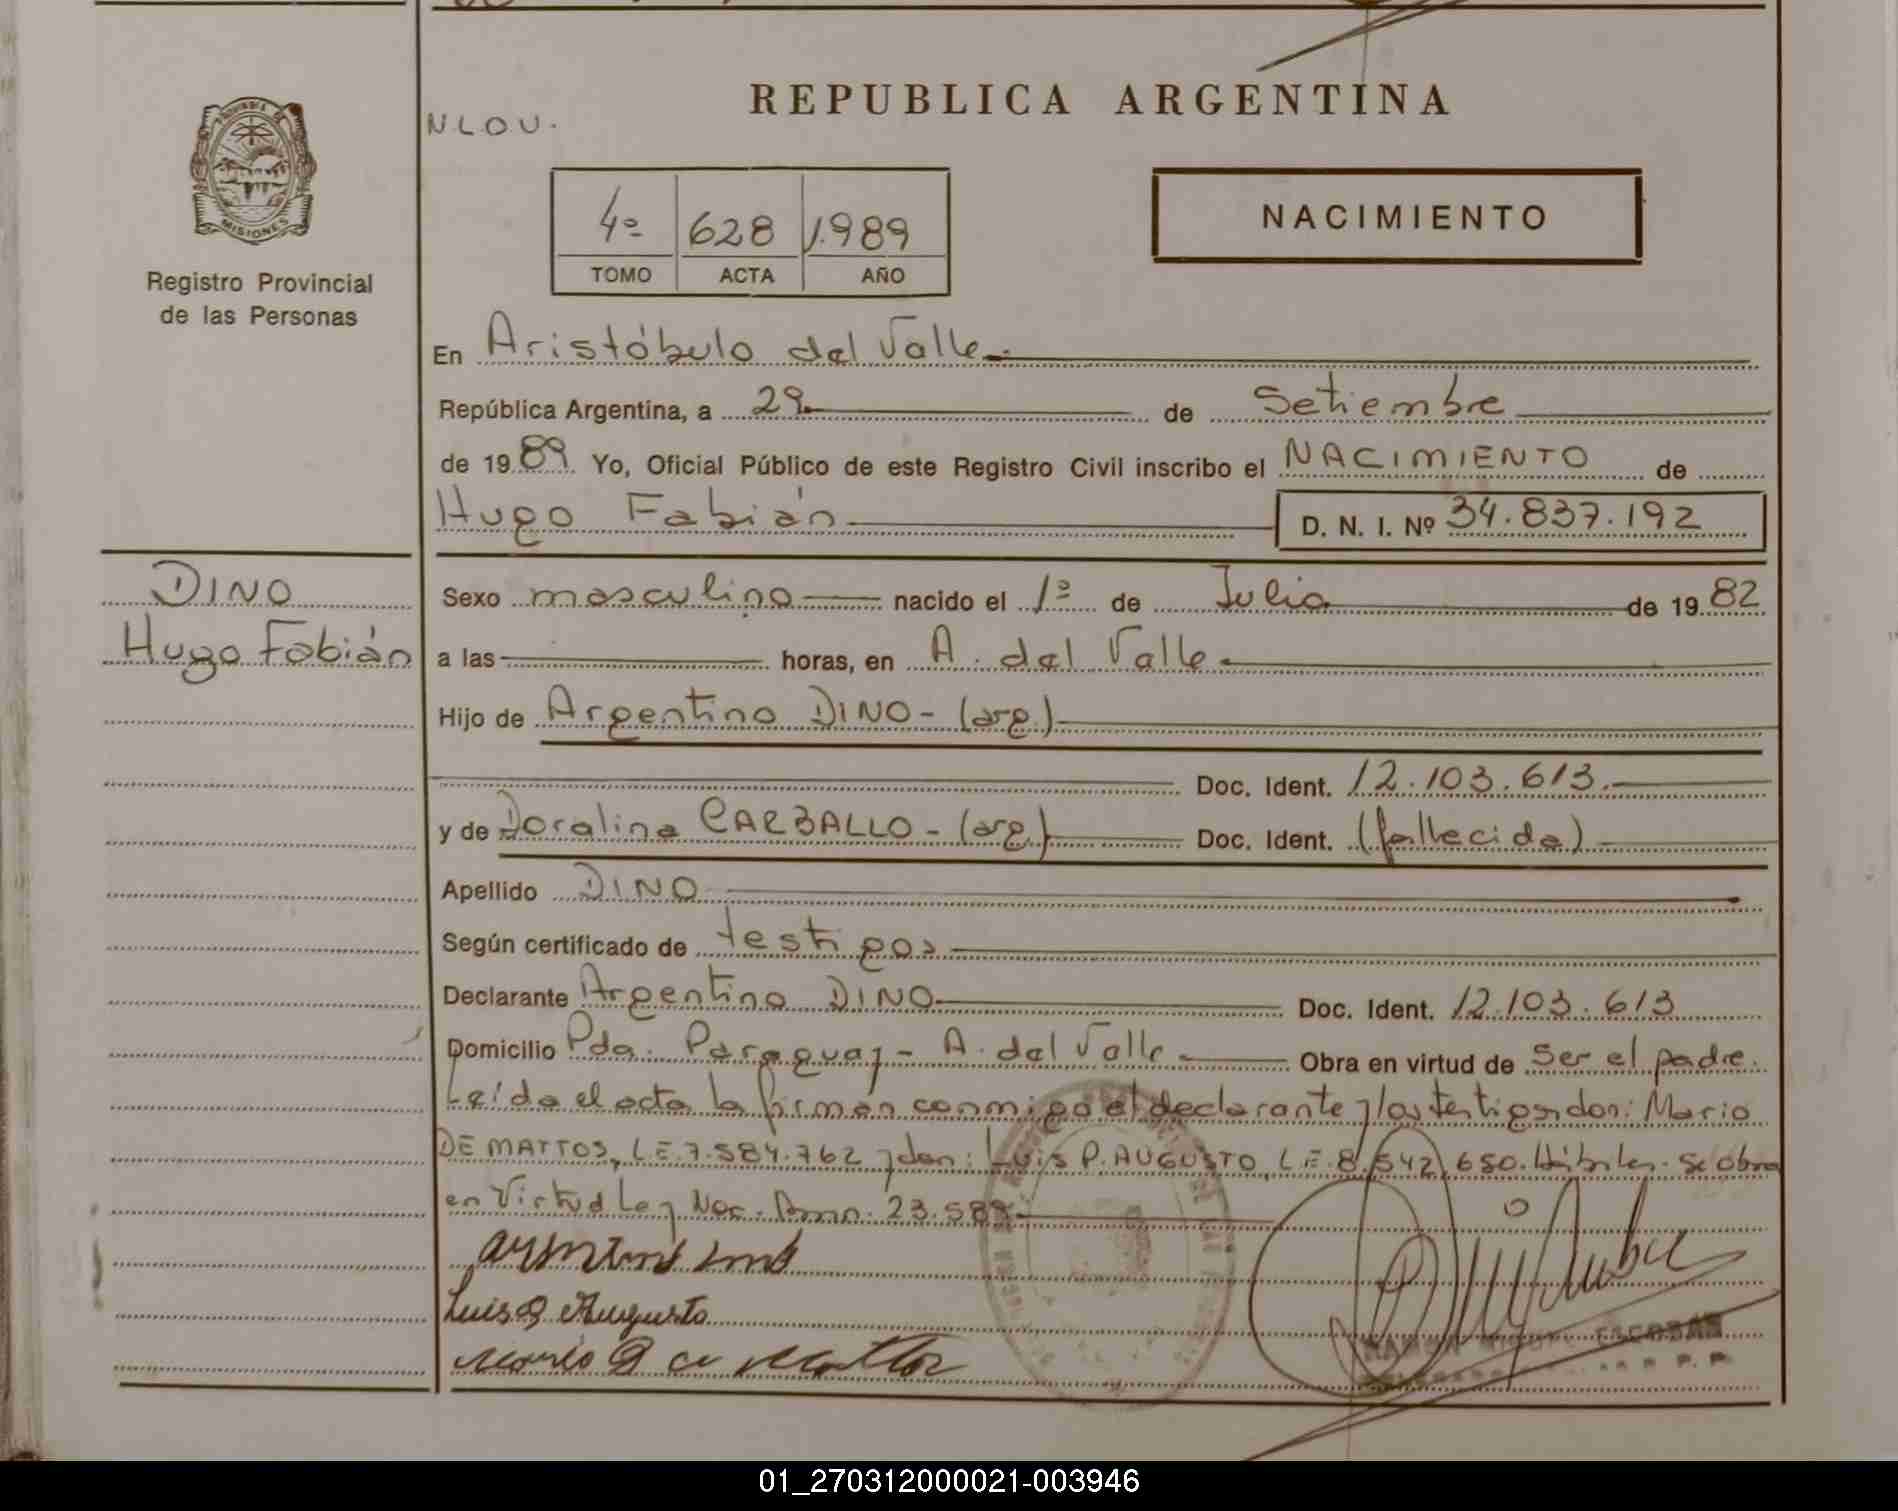 REPUBLICA ARGENTINA
N.L.O.V.
PROVINCIA DE
MISIONES
Registro Provincial
de las Personas
4º 628 1.989
TOMO ACTA AÑO
NACIMIENTO
En Aristóbulo del Valle.-
República Argentina, a 29 de Setiembre
de 19 89 Yo, Oficial Público de este Registro Civil inscribo el NACIMIENTO de
Hugo Fabián D. N. I. Nº 34.837.192
DINO
Hugo Fabián
Sexo masculino nacido el 1º de Julio de 19 82
a las horas, en A. del Valle.
Hijo de Argentino DINO - (arg.)
Doc. Ident. 12.103.613.
y de Doralina CARBALLO - (arg.) Doc. Ident. (fallecida)
Apellido DINO
Según certificado de testigos
Declarante Argentino DINO Doc. Ident. 12.103.613
Domicilio Pda. Paraguay - A. del Valle. Obra en virtud de Ser el padre.
Leída el acta la firman conmigo el declarante y los testigos don: Mario
DE MATTOS, L.E. 7.584.762 y don: Luis P. AUGUSTO, L.E. 8.542.650. Hábiles. Se obra
en Virtud Ley Nac. 23.588
Luis P Augusto
Mario D de Mattos
RAMON ESCOBAR
01_270312000021-003946